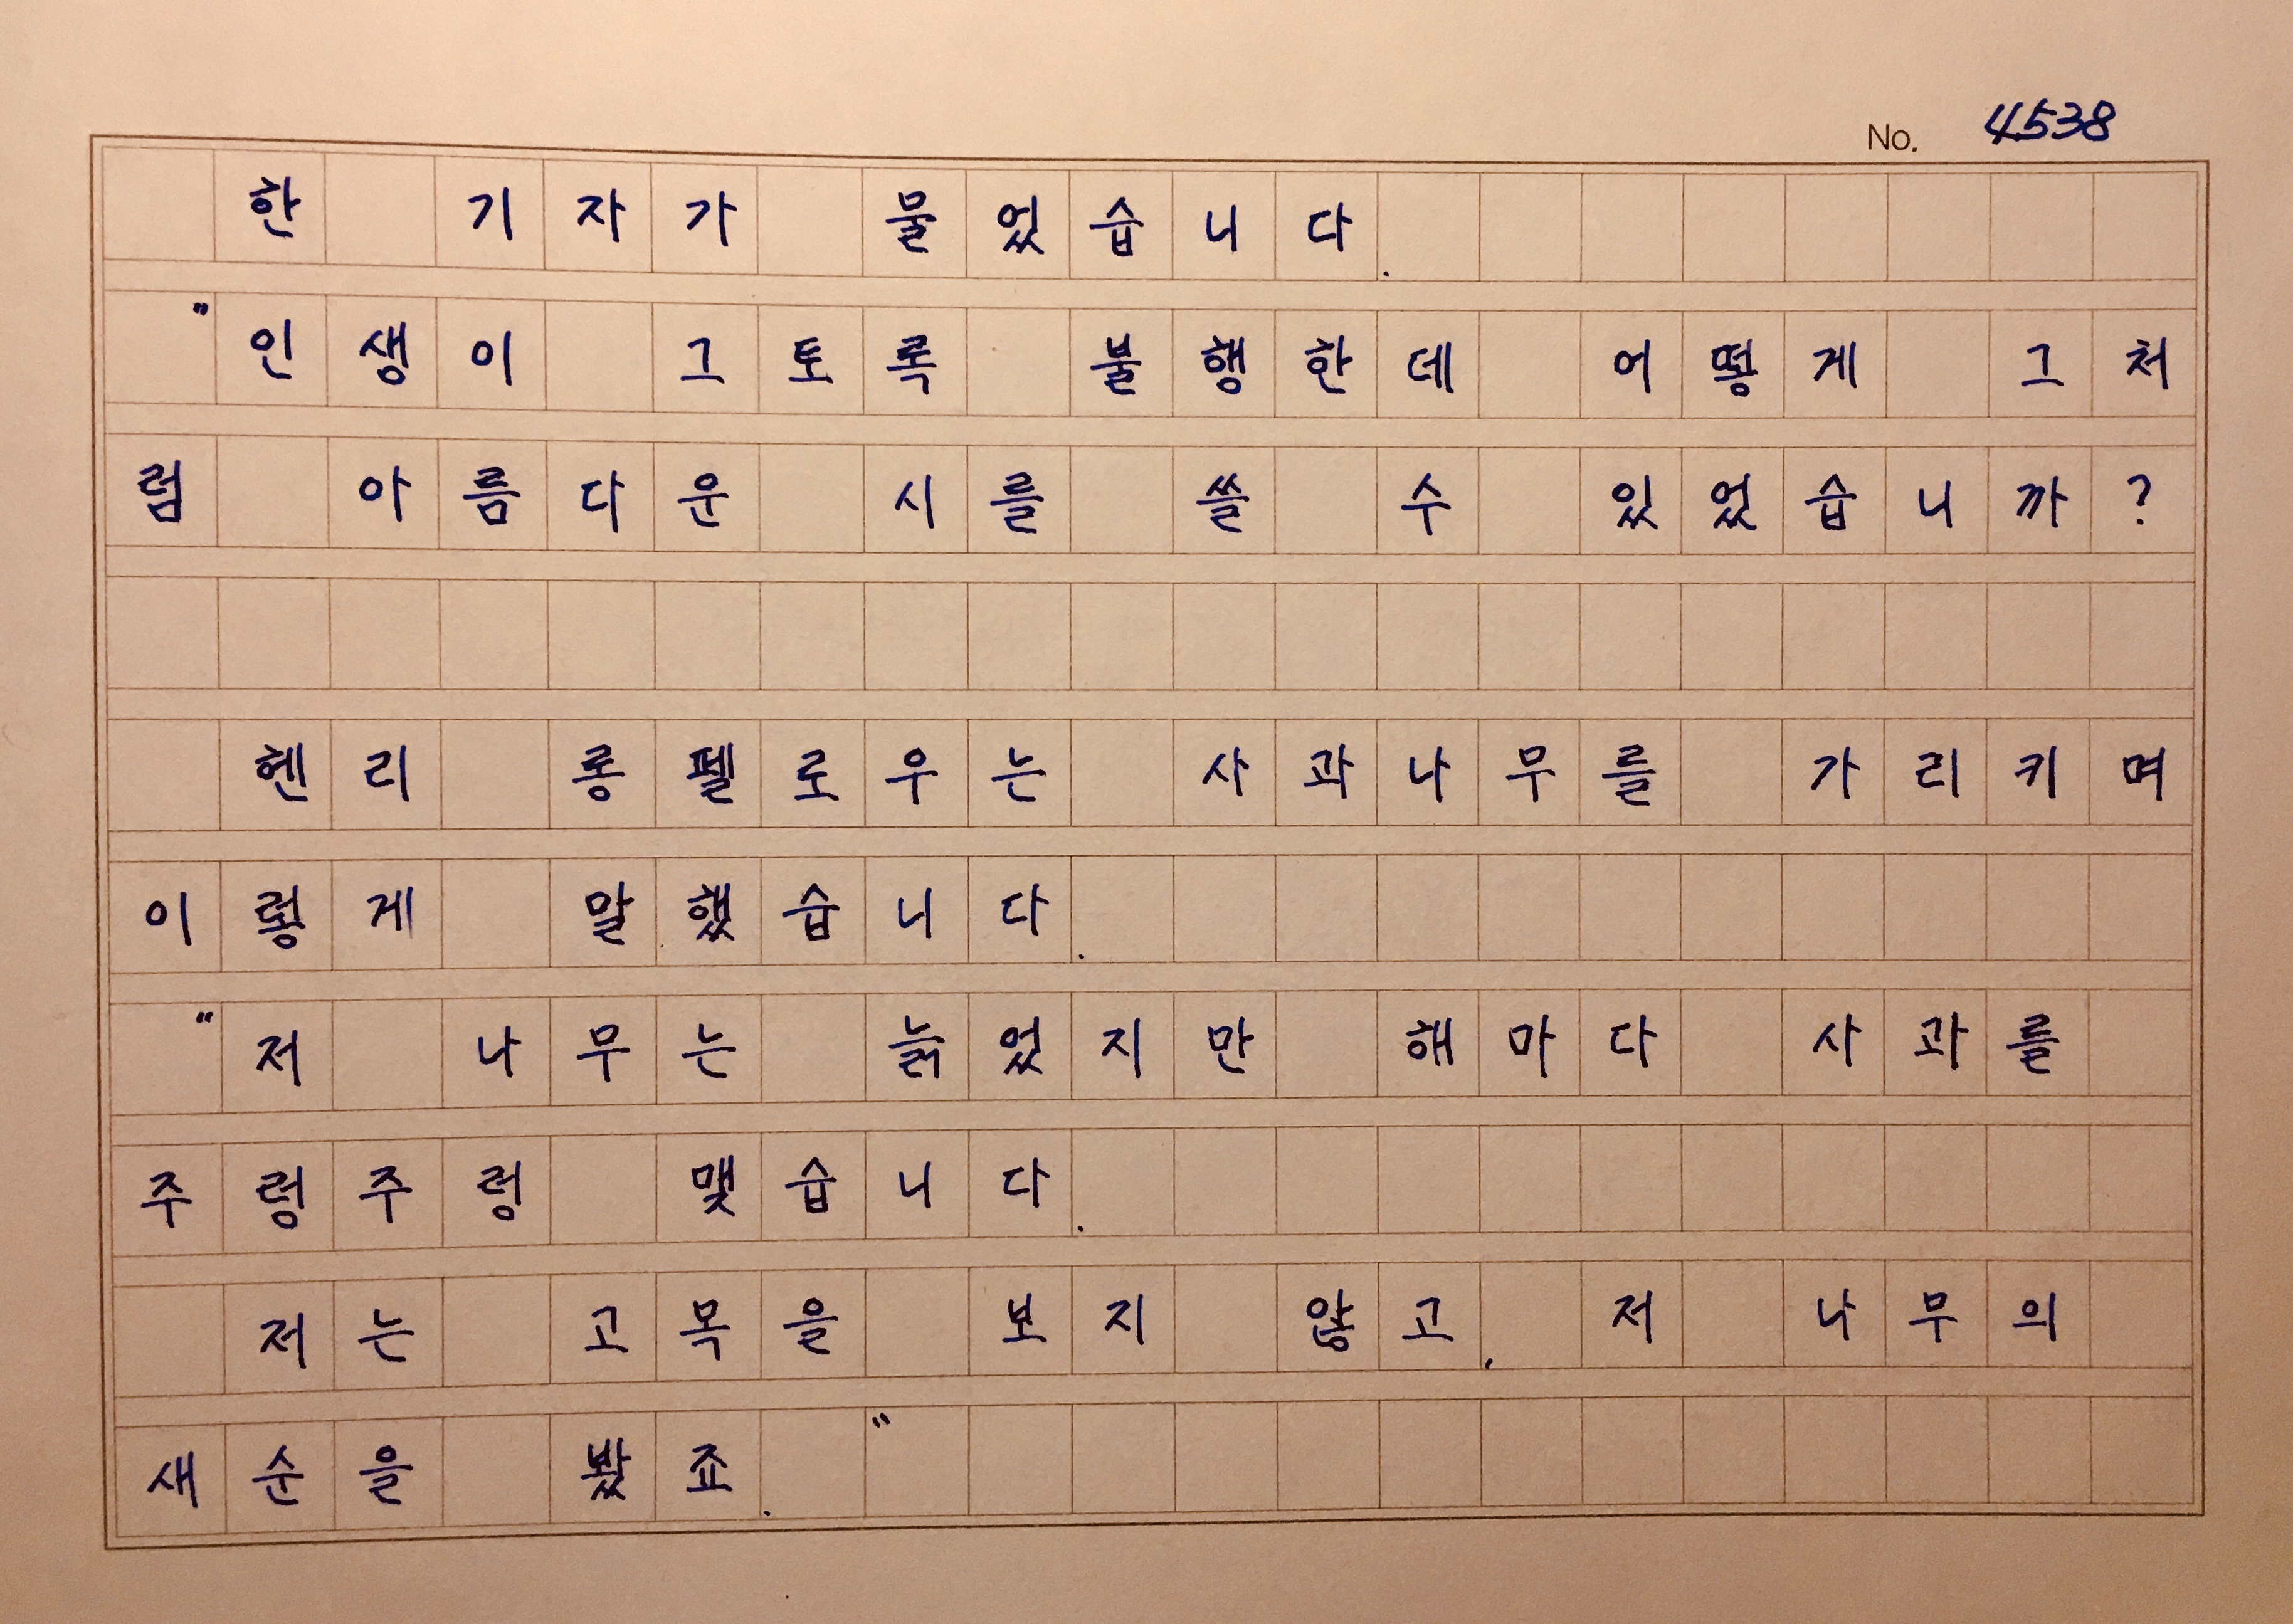 No. 4538
한 기자가 물었습니다.
"인생이 그토록 불행한데 어떻게 그처
럼 아름다운 시를 쓸 수 있었습니까?
헨리 롱펠로우는 사과나무를 가리키며
이렇게 말했습니다.
"저 나무는 늙었지만 해마다 사과를
주렁주렁 맺습니다.
저는 고목을 보지 않고, 저 나무의
새순을 봤죠."